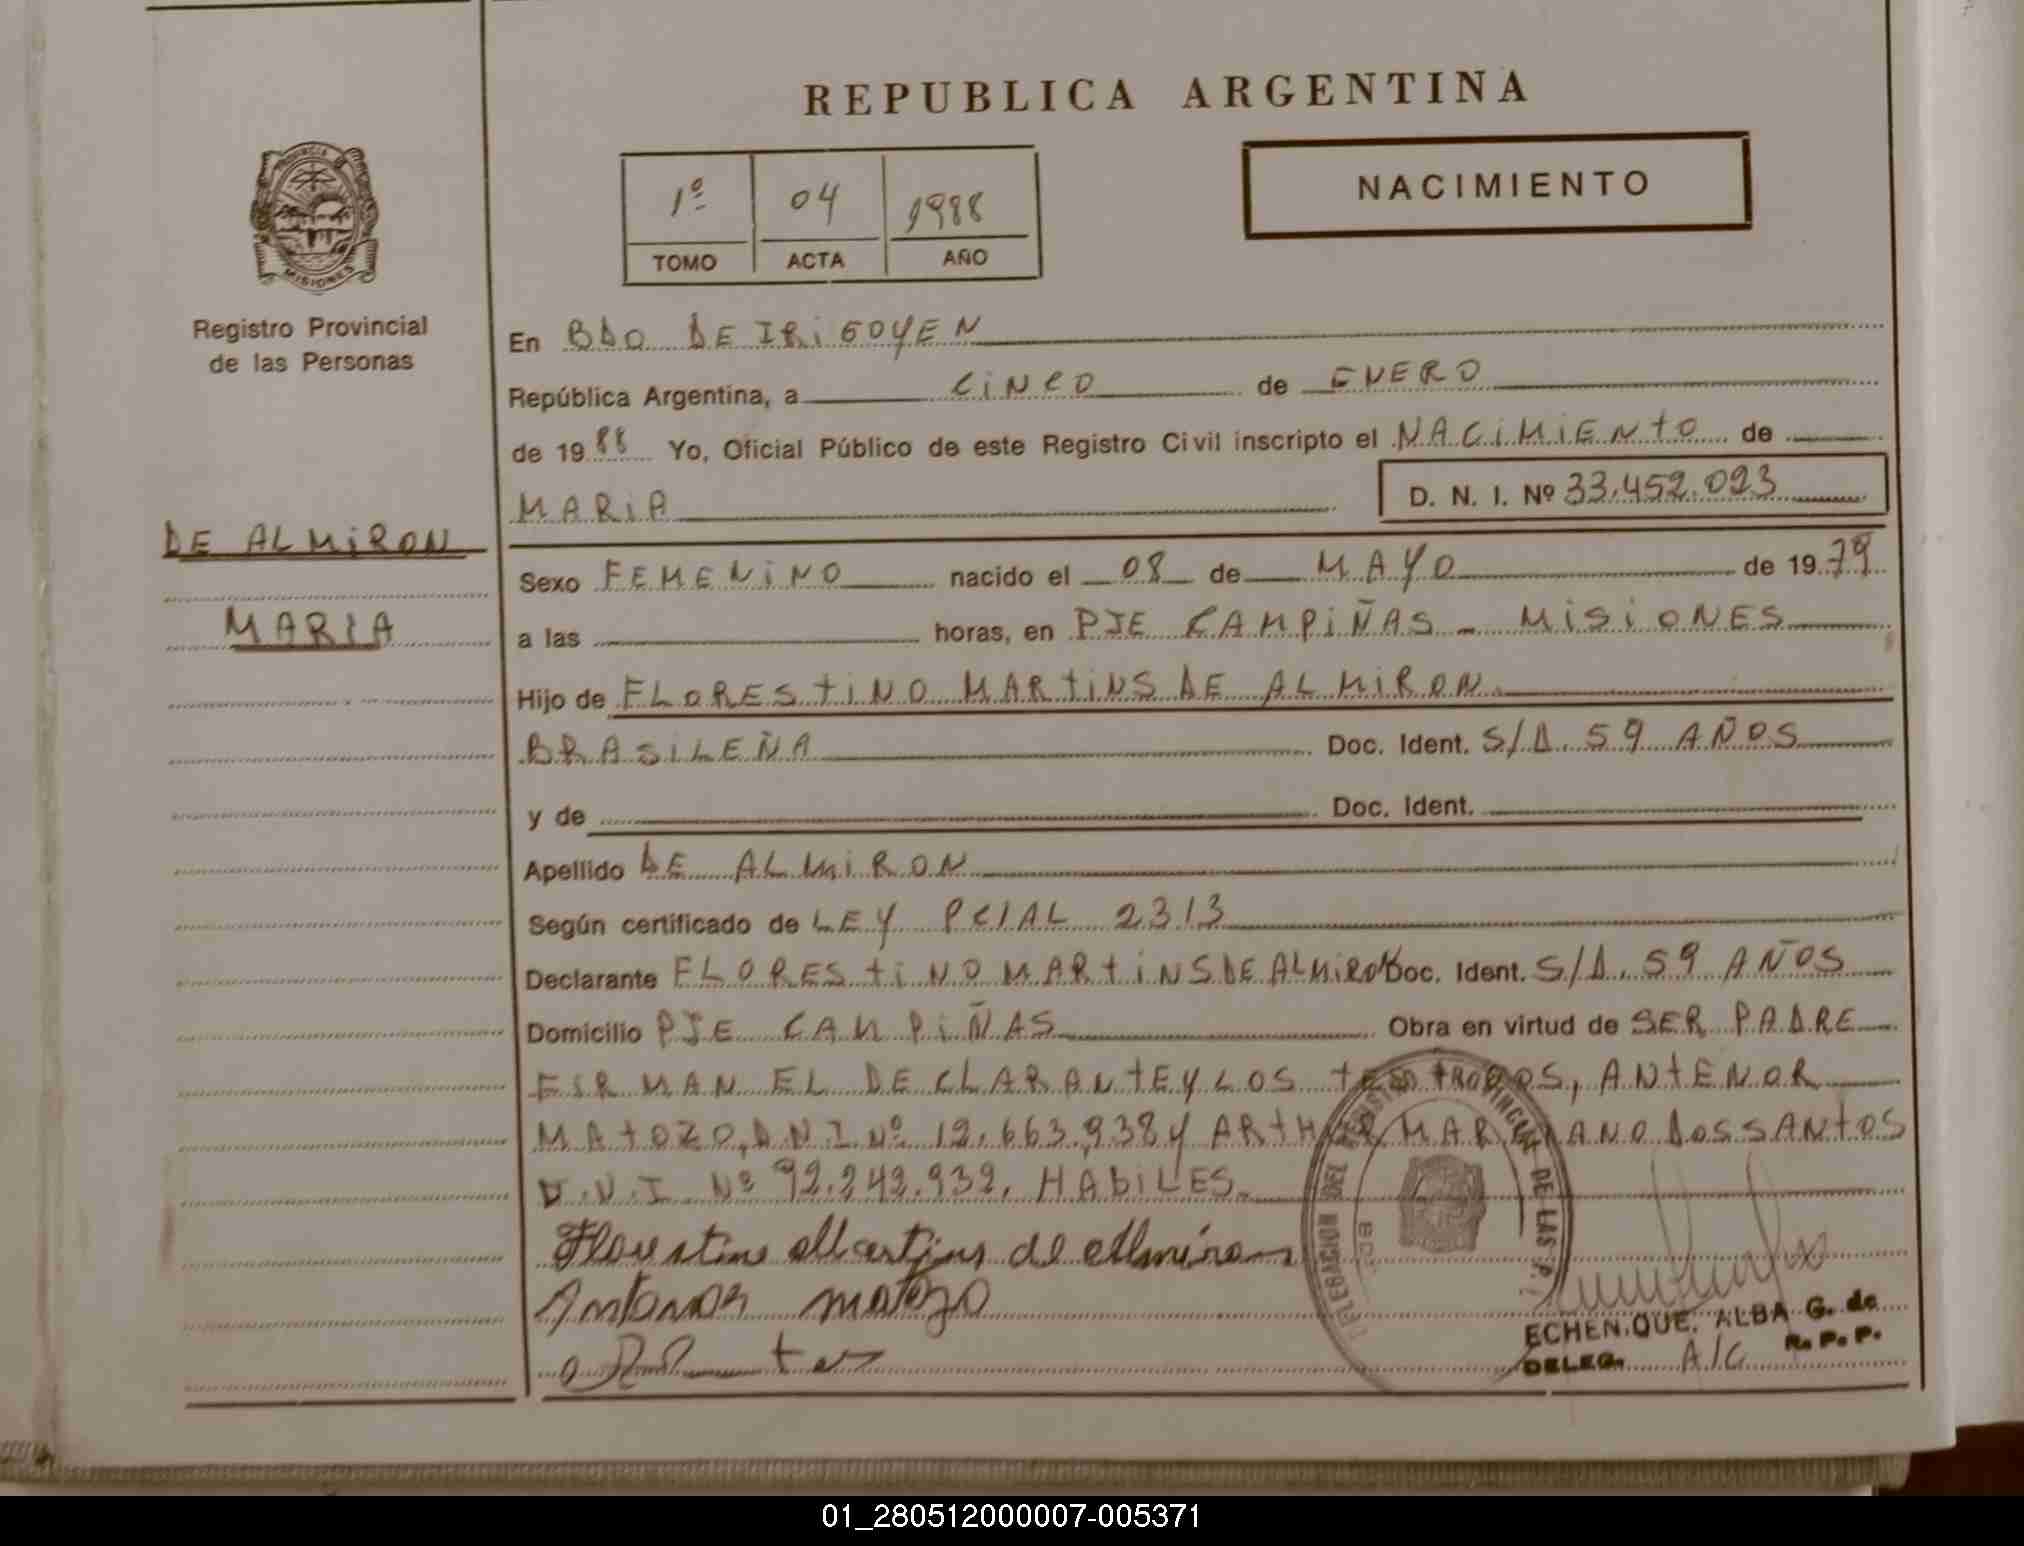 REPUBLICA ARGENTINA
PROVINCIA D
MISIONES
Registro Provincial
de las Personas
1º 04 1988
TOMO ACTA AÑO
NACIMIENTO
En BDO DE IRIGOYEN
República Argentina, a CINCO de ENERO
de 1988 Yo, Oficial Público de este Registro Civil inscripto el NACIMIENTO de
MARIA D. N. I. Nº 33.452.023
DE ALMIRON
MARIA
Sexo FEMENINO nacido el 08 de MAYO de 1979
a las horas, en PJE CAMPIÑAS - MISIONES
Hijo de FLORESTINO MARTINS DE ALMIRON
BRASILEÑA Doc. Ident. S/D. 59 AÑOS
y de Doc. Ident.
Apellido DE ALMIRON
Según certificado de LEY PCIAL 2313
Declarante FLORESTINO MARTINS DE ALMIRON Doc. Ident. S/D. 59 AÑOS
Domicilio PJE CAMPIÑAS Obra en virtud de SER PADRE
FIRMAN EL DECLARANTE Y LOS TESTIGOS, ANTENOR
MATOZO, DNI Nº 12.663.938 Y ARTHUR MARIANO DOS SANTOS
D.N.I. Nº 92.242.932, HABILES.
Florestino Martins de Almiron
Antonor matozo
DELEGACION DEL REGISTRO PROVINCIAL DE LAS P.
ECHENIQUE, ALBA G. de
DELEG. A/C R.P.P.
01_280512000007-005371